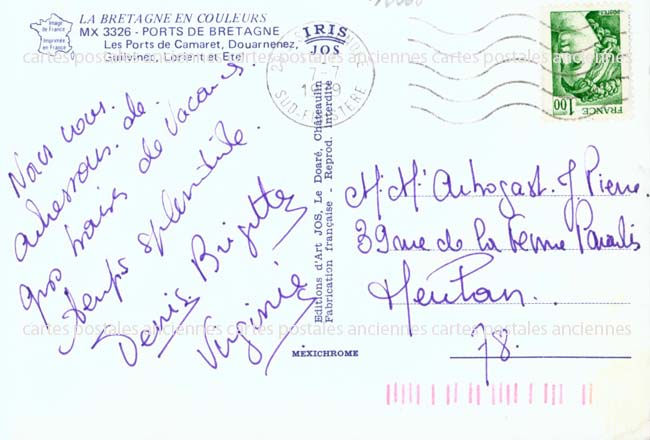 LA BRETAGNE EN COULEURS
MX 3326 - PORTS DE BRETAGNE
Les Ports de Camaret, Douarnenez,
Guilvinec, Lorient et Etel
Image de France
Imprimée en France
IRIS
JOS
7-7
SUD-FINISTERE
POSTES
1,00
FRANCE
Nous vous
adressons de
gros baisers de Vacances.
temps splendide.
Denis Brigitte
Virginie
Editions d'Art JOS, Le Doaré, Châteaulin
Fabrication française - Reprod. Interdite
MEXICHROME
M. Me Arbogast J Pierre
39 rue de la Ferme Paradis
Meulan
78.
cartes postales anciennes cartes postales anciennes cartes postales anciennes
cartes postales anciennes cartes postales anciennes cartes postales anciennes